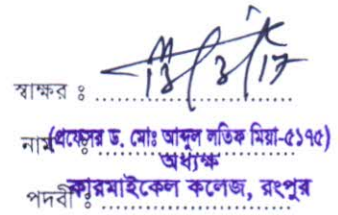 স্বাক্ষর ঃ
নাম ঃ (প্রফেসর ড. মোঃ আব্দুল লতিফ মিয়া-৫১৭৫)
অধ্যক্ষ
পদবী ঃ কারমাইকেল কলেজ, রংপুর